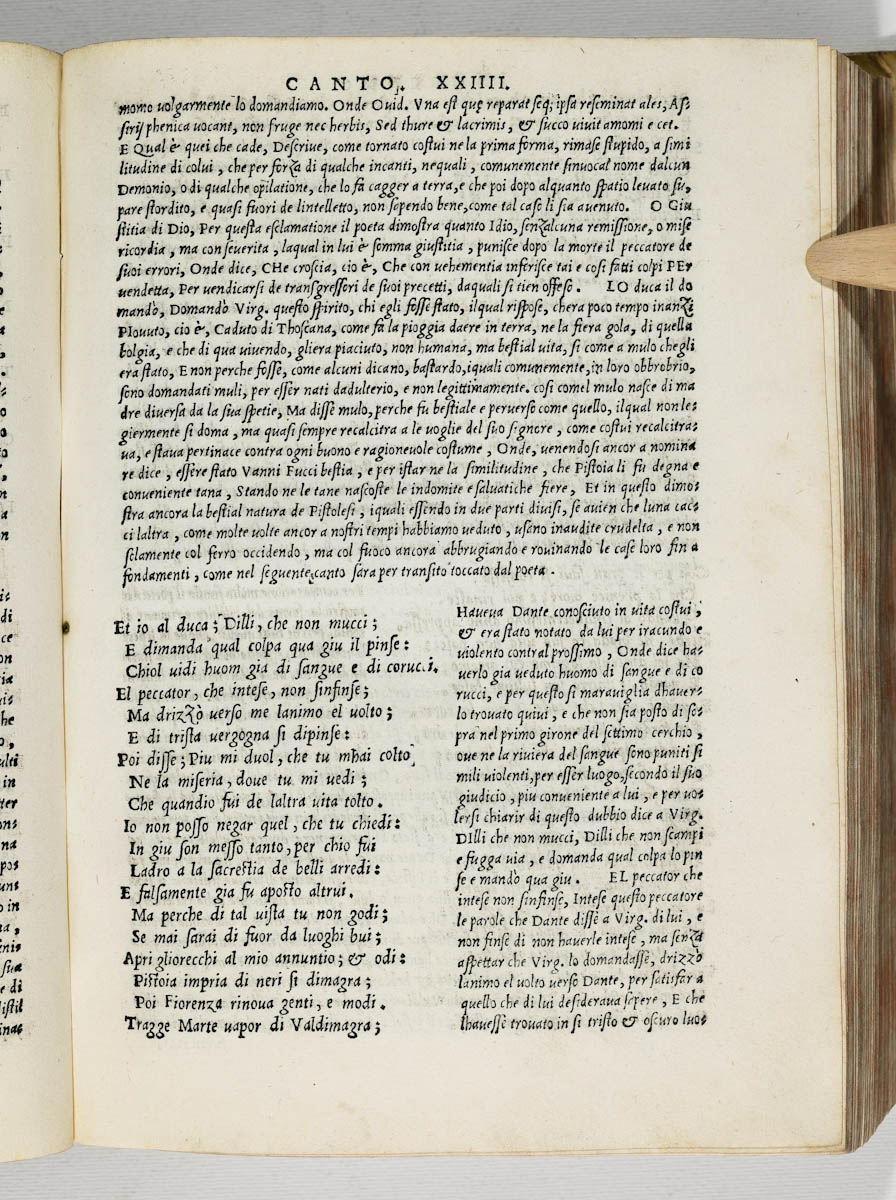 CANTO. XXIIII.
momo uolgarmente lo domandiamo. Onde Ouid. Vna est quę reparat seq; ipsa reseminat ales, As-
sirij phenica uocant, non fruge nec herbis, Sed thure & lacrimis, & succo uiuit amomi e cet.
E Qual è quei che cade, Descriue, come tornato costui ne la prima forma, rimase stupido, a simi
litudine di colui, che per forza di qualche incanti, nequali, comunemente sinuocal nome dalcun
Demonio, o di qualche opilatione, che lo fa cagger a terra, e che poi dopo alquanto spatio leuato su,
pare stordito, e quasi fuori de lintelletto, non sapendo bene, come tal caso li sia auenuto. O Giu
stitia di Dio, Per questa esclamatione il poeta dimostra quanto Idio, senzalcuna remissione, o mise
ricordia, ma con seuerita, laqual in lui è somma giustitia, punisce dopo la morte il peccatore de
suoi errori, Onde dice, CHe croscia, cio è, Che con uehementia inferisce tai e cosi fatti colpi PEr
uendetta, Per uendicarsi de transgressori de suoi precetti, daquali si tien offeso. LO duca il do
mandò, Domandò Virg. questo spirito, chi egli fosse stato, ilqual rispose, chera poco tempo inanzi
PIouuto, cio è, Caduto di Thoscana, come fa la pioggia daere in terra, ne la fiera gola, di quella
bolgia, e che di qua uiuendo, gliera piaciuto, non humana, ma bestial uita, si come a mulo chegli
era stato, E non perche fosse, come alcuni dicano, bastardo, iquali comunemente, in loro obbrobrio,
sono domandati muli, per esser nati dadulterio, e non legittimamente. cosi comel mulo nasce di ma
dre diuersa da la sua spetie, Ma disse mulo, perche fu bestiale e peruerso come quello, ilqual non le-
giermente si doma, ma quasi sempre recalcitra a le uoglie del suo signore, come costui recalcitra-
ua, e staua pertinace contra ogni buono e ragioneuole costume, Onde, uenendosi ancor a nomina
re dice, essere stato Vanni Fucci bestia, e per istar ne la similitudine, che Pistoia li fu degna e
conueniente tana, Stando ne le tane nascoste le indomite e saluatiche fiere, Et in questo dimo-
stra ancora la bestial natura de Pistolesi, iquali essendo in due parti diuisi, se auien che luna cac-
ci laltra, come molte uolte ancor a nostri tempi habbiamo ueduto, usano inaudite crudelta, e non
solamente col ferro occidendo, ma col fuoco ancora abbrugiando e rouinando le case loro fin a
fondamenti, come nel seguente canto sara per transito toccato dal poeta.
Et io al duca; Dilli, che non mucci;
E dimanda qual colpa qua giu il pinse:
Chiol uidi huom gia di sangue e di corucci.
El peccator, che intese, non sinfinse;
Ma drizzò uerso me lanimo el uolto;
E di trista uergogna si dipinse:
Poi disse; Piu mi duol, che tu mhai colto
Ne la miseria, doue tu mi uedi;
Che quandio fui de laltra uita tolto.
Io non posso negar quel, che tu chiedi:
In giu son messo tanto, per chio fui
Ladro a la sacrestia de belli arredi:
E falsamente gia fu aposto altrui.
Ma perche di tal uista tu non godi;
Se mai sarai di fuor da luoghi bui;
Apri gliorecchi al mio annuntio; & odi:
Pistoia impria di neri si dimagra;
Poi Fiorenza rinoua genti, e modi.
Tragge Marte uapor di Valdimagra;
Haueua Dante conosciuto in uita costui,
& era stato notato da lui per iracundo e
uiolento contral prossimo, Onde dice ha-
uerlo gia ueduto huomo di sangue e di co
rucci, e per questo si marauiglia dhauer-
lo trouato quiui, e che non sia posto di so-
pra nel primo girone del settimo cerchio,
oue ne la riuiera del sangue sono puniti si
mili uiolenti, per esser luogo, secondo il suo
giudicio, piu conueniente a lui, e per uo-
lersi chiarir di questo dubbio dice a Virg.
DIlli che non mucci, Dilli che non scampi
e fugga uia, e domanda qual colpa lo pin
se e mandò qua giu. EL peccator che
intese non sinfinse, Intese questo peccatore
le parole che Dante disse a Virg. di lui, e
non finse di non hauerle intese, ma senza
aspettar che Virg. lo domandasse, drizzò
lanimo el uolto uerso Dante, per satisfar a
quello che di lui desideraua sapere, E che
lhauesse trouato in si tristo & oscuro luo-